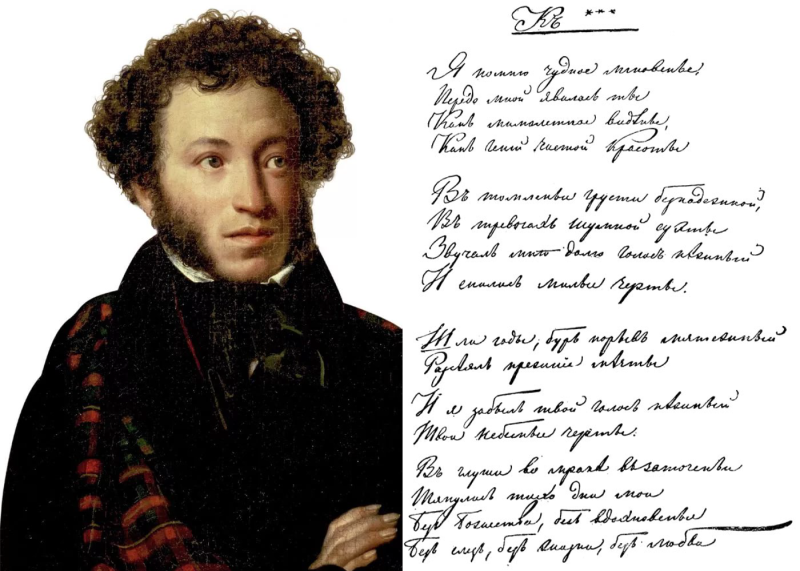 Къ ***
Я помню чудное мгновенье,
Передо мной явилась ты
Какъ мимолетное видѣнье,
Какъ геній чистой красоты
Въ томленьи грусти безнадежной,
Въ тревогахъ шумной суеты
Звучалъ мнѣ долго голосъ нѣжный
И снились милые черты.
Шли годы, бурь порывъ мятежный
Разсѣялъ прежніе мечты
И я забылъ твой голосъ нѣжный
Твои небесные черты.
Въ глуши во мракѣ заточенья
Тянулись тихо дни мои
Безъ Божества, безъ вдохновенья
Безъ слезъ, безъ жизни, безъ любви